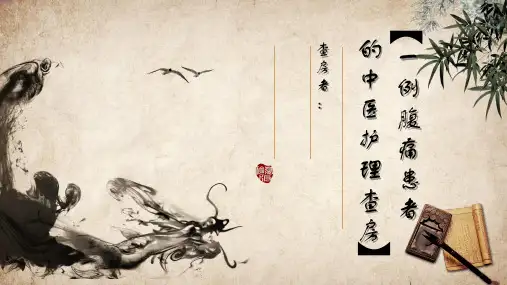 【一例腹痛患者
的中医护理查房】
查房者：